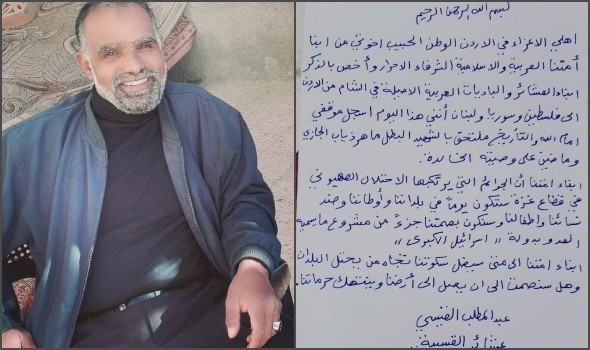 بسم الله الرحمن الرحيم
اهلي الاعزاء في الاردن الوطن الحبيب اخوتي من ابنا
أمتنا العربية والاسلامية الشرفاء الاحرار وأخص بالذكر
ابناء العشائر والباديات العربية الاصيلة في الشام من الاردن
الى فلسطين وسوريا ولبنان أنني هذا اليوم اسجل موقفي
امام الله والتأريخ ملتحق بالشهيد البطل ماهر ذياب الجازي
وماضين على وصيته الخالدة.
ابناء امتنا أن الجرائم التي يرتكبها الاحتلال الصهيوني
في قطاع غزة ستكون يوماً في بلداننا وأوطاننا وضد
نسائنا واطفالنا وستكون بصمتنا جزءً من مشروع ما يسميه
العدو بدولة "اسرائيل الكبرى"
ابناء امتنا الى متى سيبقى سكوتنا تجاه من يحتل البلدان
وهل سنصمت الى ان يصل الى أرضنا وينتهك حرماتنا.
عبدالمطلب القيسي
عشائر القيسية.